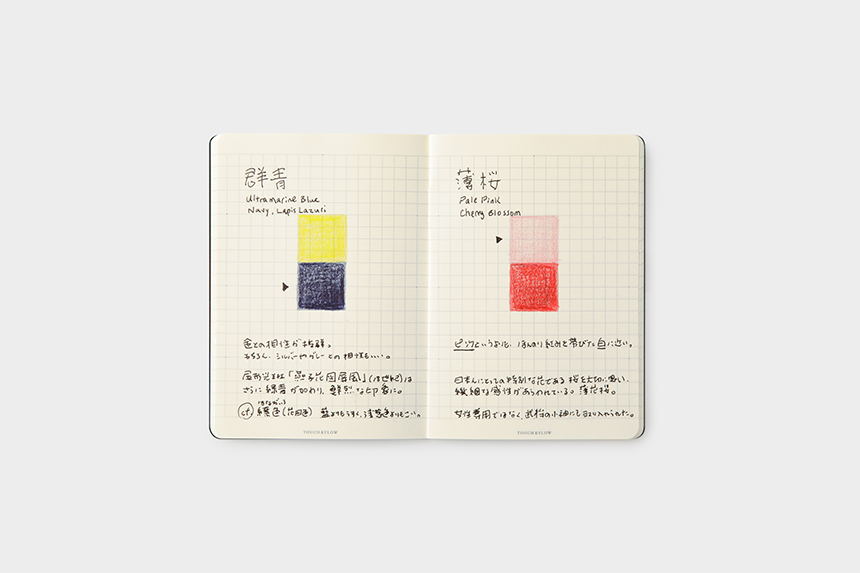 群青
Ultramarine Blue
Navy, Lapis Lazuri
金との相性が抜群。
もちろん、シルバーやグレーとの相性もいい。
尾形光琳「燕子花図屏風」は
さらに緑青が加わり、鮮烈な印象に。
はなだいろ
cf 縹色(花田色) 藍よりもうすく、浅葱色よりもこい。
TOUCH & FLOW
薄桜
Pale Pink
Cherry Blossom
ピンクというよりは、ほんのり紅みを帯びた白に近い。
日本人にとっての特別な花である桜を大切に思い、
繊細な感性があらわれている。薄花桜。
女性専用ではなく、武将の小袖にも取り入れられた。
TOUCH & FLOW